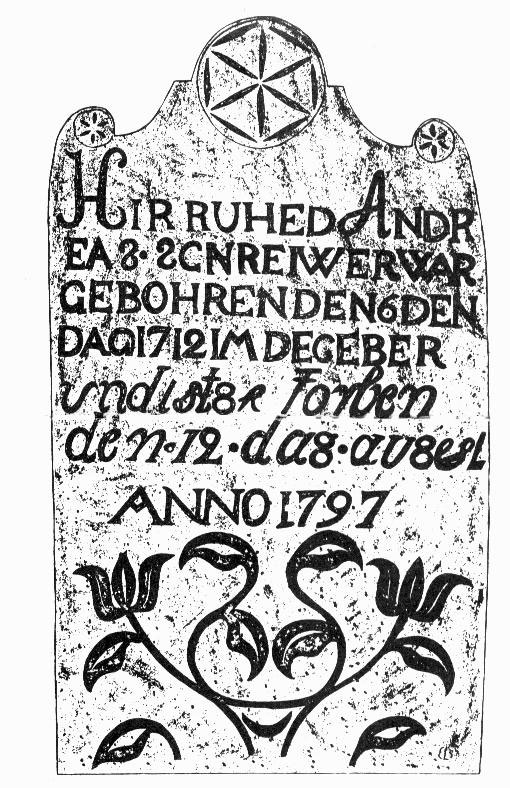 HIR RUHED ANDR
EAS · SCNREIWER WAR
GEBOHREN DEN 6 DEN
DAG 1712 IM DEGEBER
und ist ge storben
den · 12 · das · augest
ANNO 1797